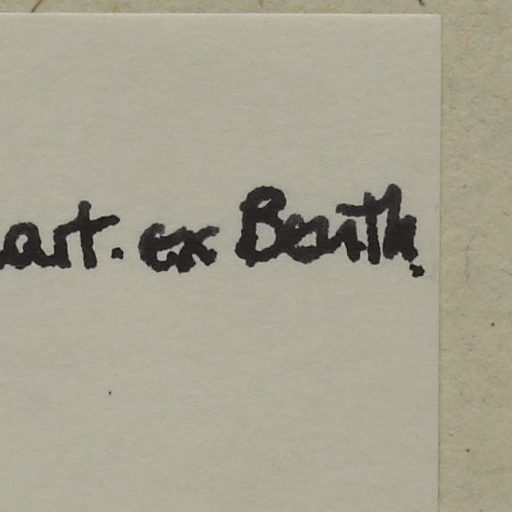 art. ex Benth.